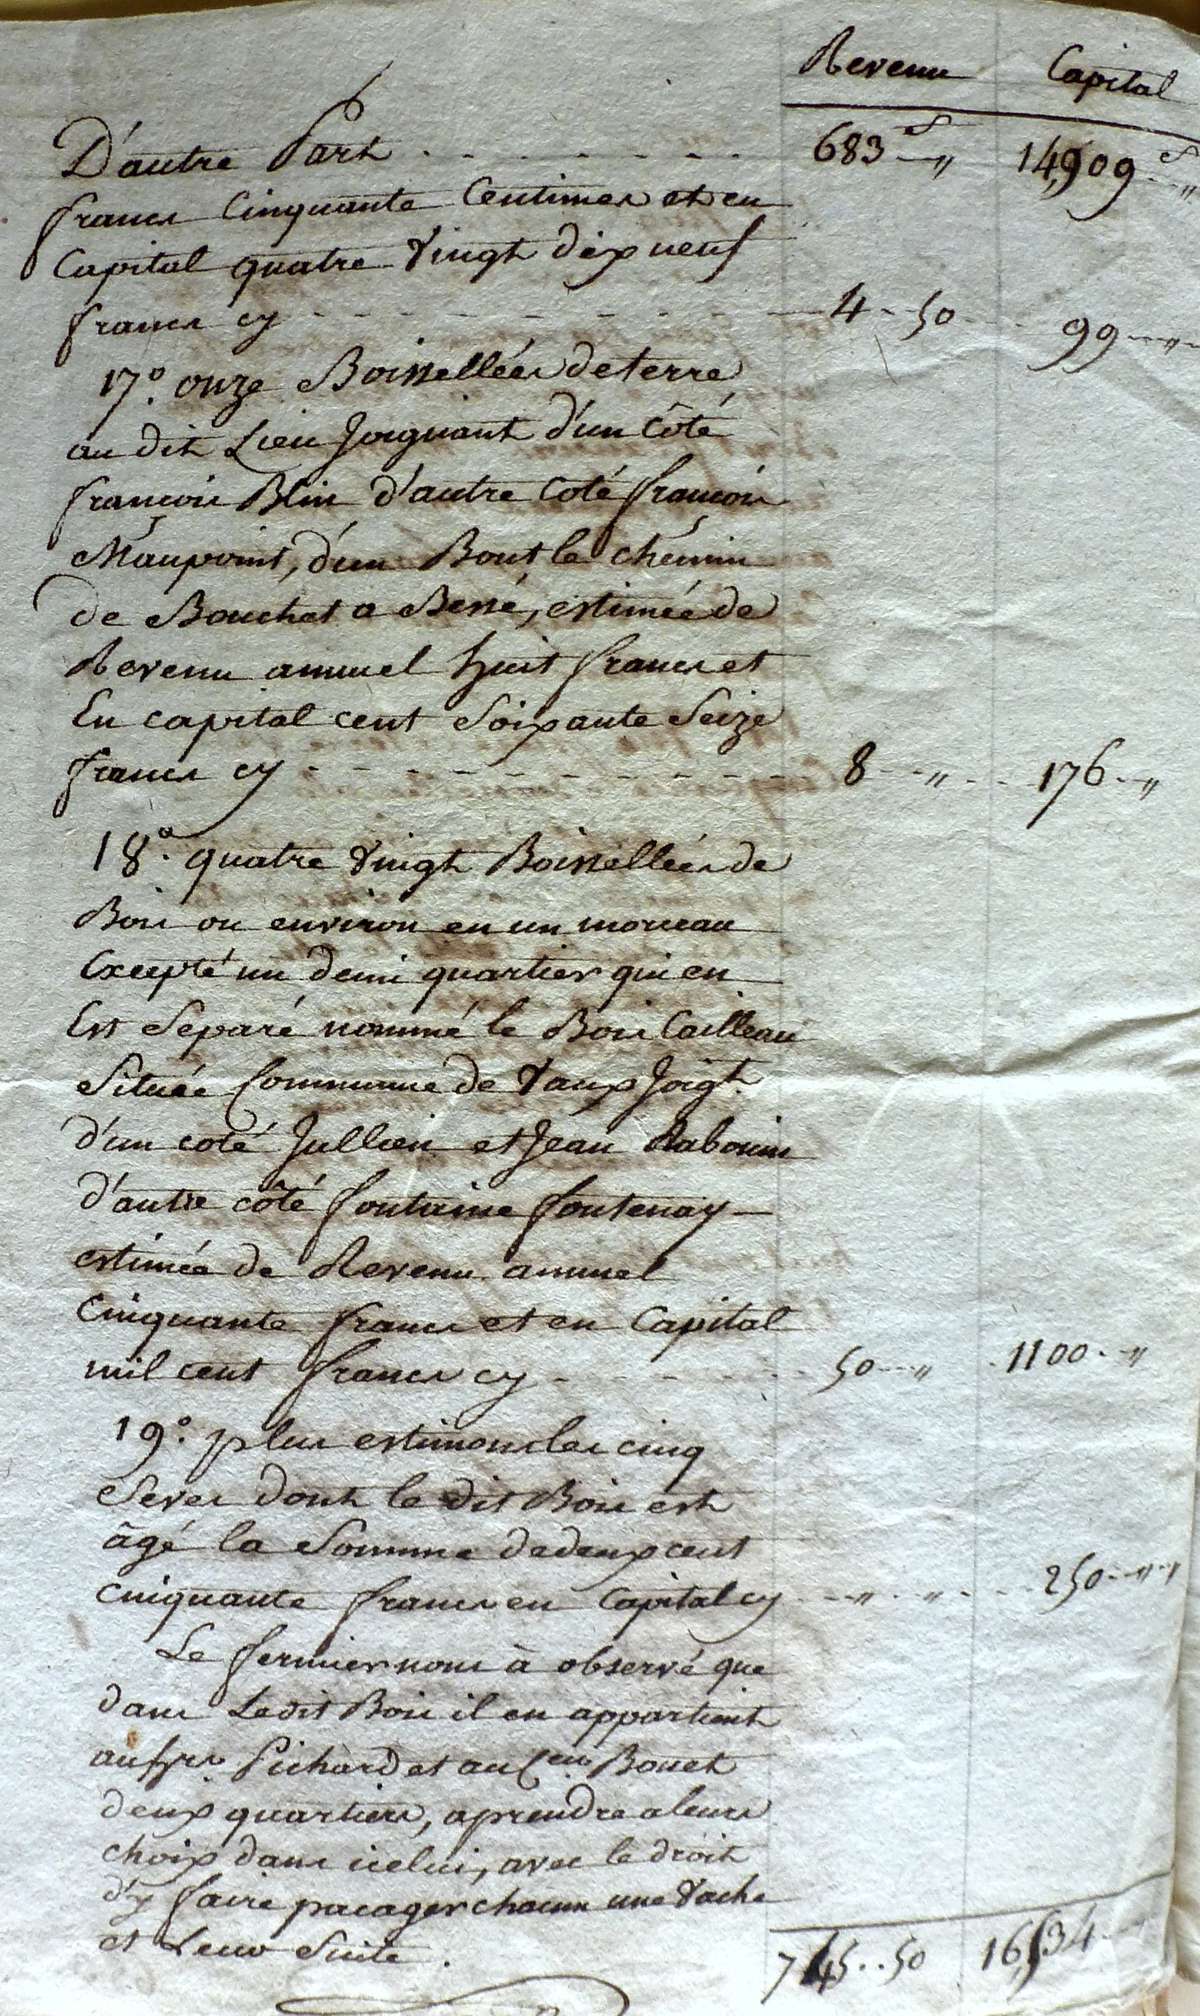 Revenu Capital
D'autre Part . . . . . . . 683 f „ 14,909 f „
francs Cinquante Centimes et en
Capital quatre Vingt dix neuf
francs cy - - - - - - - - - 4 - 50 - - 99 - „
17º. onze Boisselléés de terre
au dit Lieu Joignant d'un Côté
françois Blin d'autre Coté françois
Maupoint, d'un Bout le chémin
de Bouchet a Bessé, estimée de
Revenu annuel huit francs et
En capital cent Soixante Seize
francs cy - - - - - - - - - 8 - „ - - 176 - „
18º. quatre Vingt Boisselléés de
Bois ou environ en un morceau
Excepté un demi quartier qui en
Est Séparé nommé le Bois Cailleau
Située Commune de Vaux Joigt.
d'un coté Jullien et Jean Rabouin
d'autre côté fontaine fontenay
estimée de Revenu annuel
Cinquante francs et en Capital
mil cent francs cy - - - - - 50 - „ - 1100 - „
19º. plus estimons les cinq
Seves dont le dit Bois est
âgé la Somme de deux cent
Cinquante francs en Capital cy - „ - „ - - 250 - „
Le fermier nous à observé que
dans Ledit Bois il en appartient
Pichard et au Cen. Bouet
deux quartiers, a prendre a leurs
choix dans icelui, avec le droit
d'y faire pacager chacun une Vache
et Leur Suite. 745 . . 50 16,534